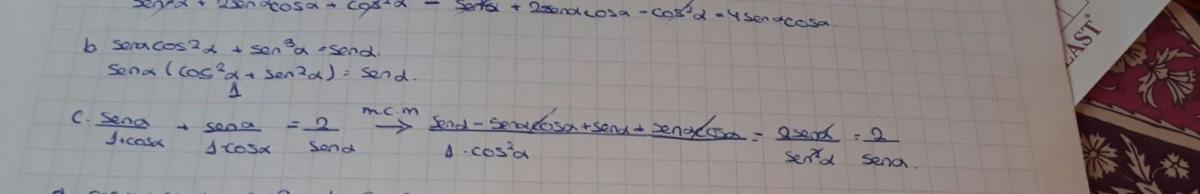 sen²α + 2senαcosα + cos²α - sen²α + 2senαcosα - cos²α = 4senαcosα
b senαcos²α + sen³α = senα.
senα (cos²α + sen²α) = senα.
1
c. senα/1+cosα + senα/1-cosα = 2/senα m.c.m → senα - senαcosα + senα + senαcosα/1-cos²α = 2senα/sen²α = 2/senα.
AST®